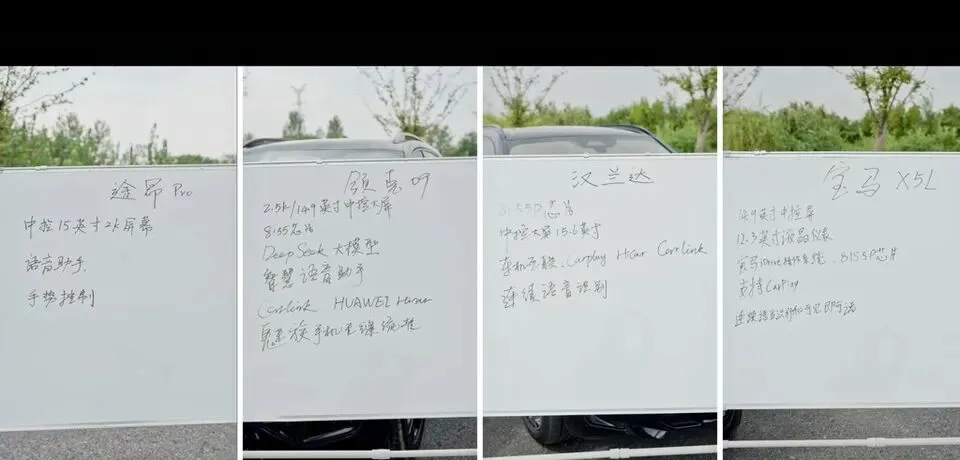 途昂 Pro
中控15英寸2k屏幕
语音助手.
手势控制
领克09
2.5k/14.9英寸中控大屏
8155芯片
DeepSeek 大模型
智慧语音助手
Carlink HUAWEI Hicar
魅族手机无缝流转
汉兰达
8155P芯片
中控大屏15.6英寸
车机互联、Carplay Hicar Carlink
连续语音识别
宝马 X5L
14.9英寸中控屏
12.3英寸液晶仪表
宝马iDrive操作系统、8155P芯片
支持CarPlay
连续语音识别和可见即可说